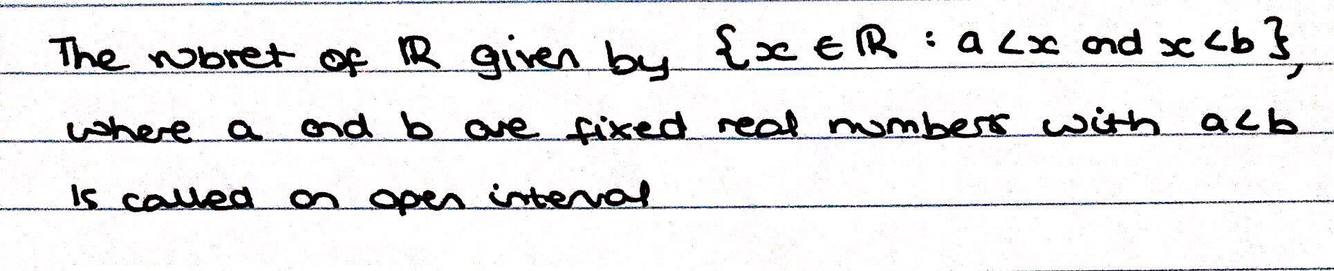 The subset of ℝ given by {x ∈ ℝ : a < x and x < b},
where a and b are fixed real numbers with a < b
is called an open interval